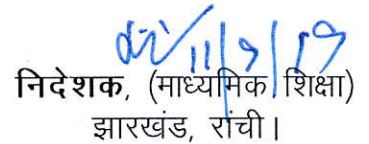 11/9/19
निदेशक, (माध्यमिक शिक्षा)
झारखंड, राँची।